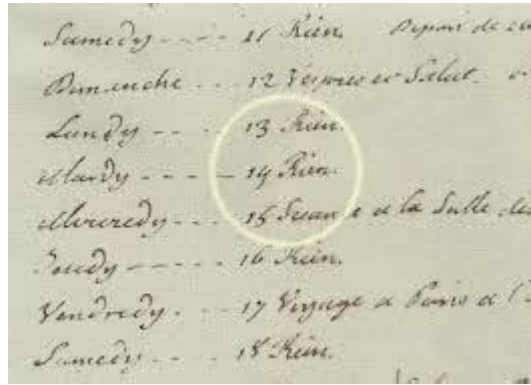 Samedy 11 Rien. Depart de
Dimanche 12 Vespres et Salut.
Lundy 13 Rien.
Mardy 14 Rien.
Mercredy 15 Seance a la Salle des
Jeudy 16 Rien.
Vendredy 17 Voyage a Paris a
Samedy 18 Rien.